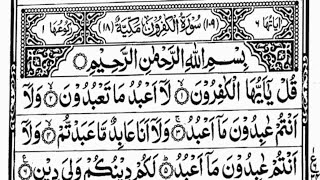 اٰيَاتُهَا ٦ (١٠٩) سُوْرَةُ الْكٰفِرُوْنَ مَكِّيَّةٌ (١٨) رُكُوْعُهَا ١
بِسْمِ اللّٰهِ الرَّحْمٰنِ الرَّحِيْمِ
قُلْ يٰٓاَيُّهَا الْكٰفِرُوْنَ ۙ١ لَآ اَعْبُدُ مَا تَعْبُدُوْنَ ۙ٢ وَلَآ
اَنْتُمْ عٰبِدُوْنَ مَآ اَعْبُدُ ۚ٣ وَلَآ اَنَا عَابِدٌ مَّا عَبَدْتُّمْ ۙ٤ وَلَآ
اَنْتُمْ عٰبِدُوْنَ مَآ اَعْبُدُ ۗ٥ لَكُمْ دِيْنُكُمْ وَلِيَ دِيْنِ ٦